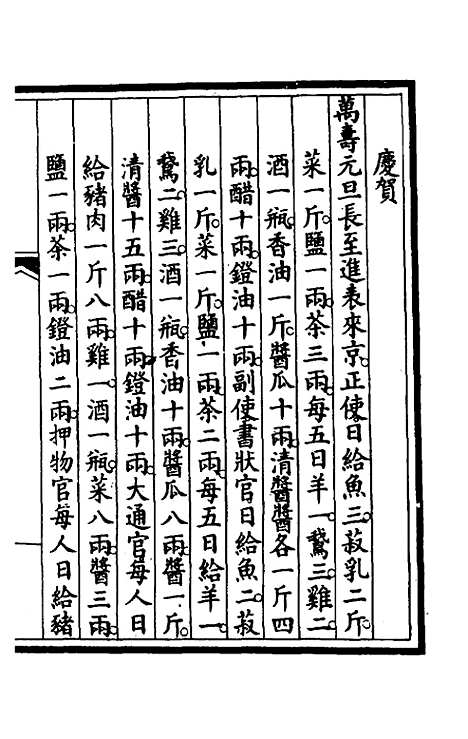 慶賀
萬壽元旦長至進表來京。正使日給魚三。菽乳二斤。
菜一斤。鹽一兩。茶三兩。每五日羊一。鵞三。雞二。
酒一瓶。香油一斤。醬瓜十兩。清醬醬各一斤四
兩。醋十兩。鐙油十兩。副使書狀官日給魚二。菽
乳一斤。菜一斤。鹽一兩。茶二兩。每五日給羊一。
鵞二。雞三。酒一瓶。香油十兩。醬瓜八兩。醬一斤。
清醬十五兩。醋十兩。鐙油十兩。大通官每人日
給豬肉一斤八兩。雞一。酒一瓶。菜八兩。醬三兩。
鹽一兩。茶一兩。鐙油二兩。押物官每人日給豬